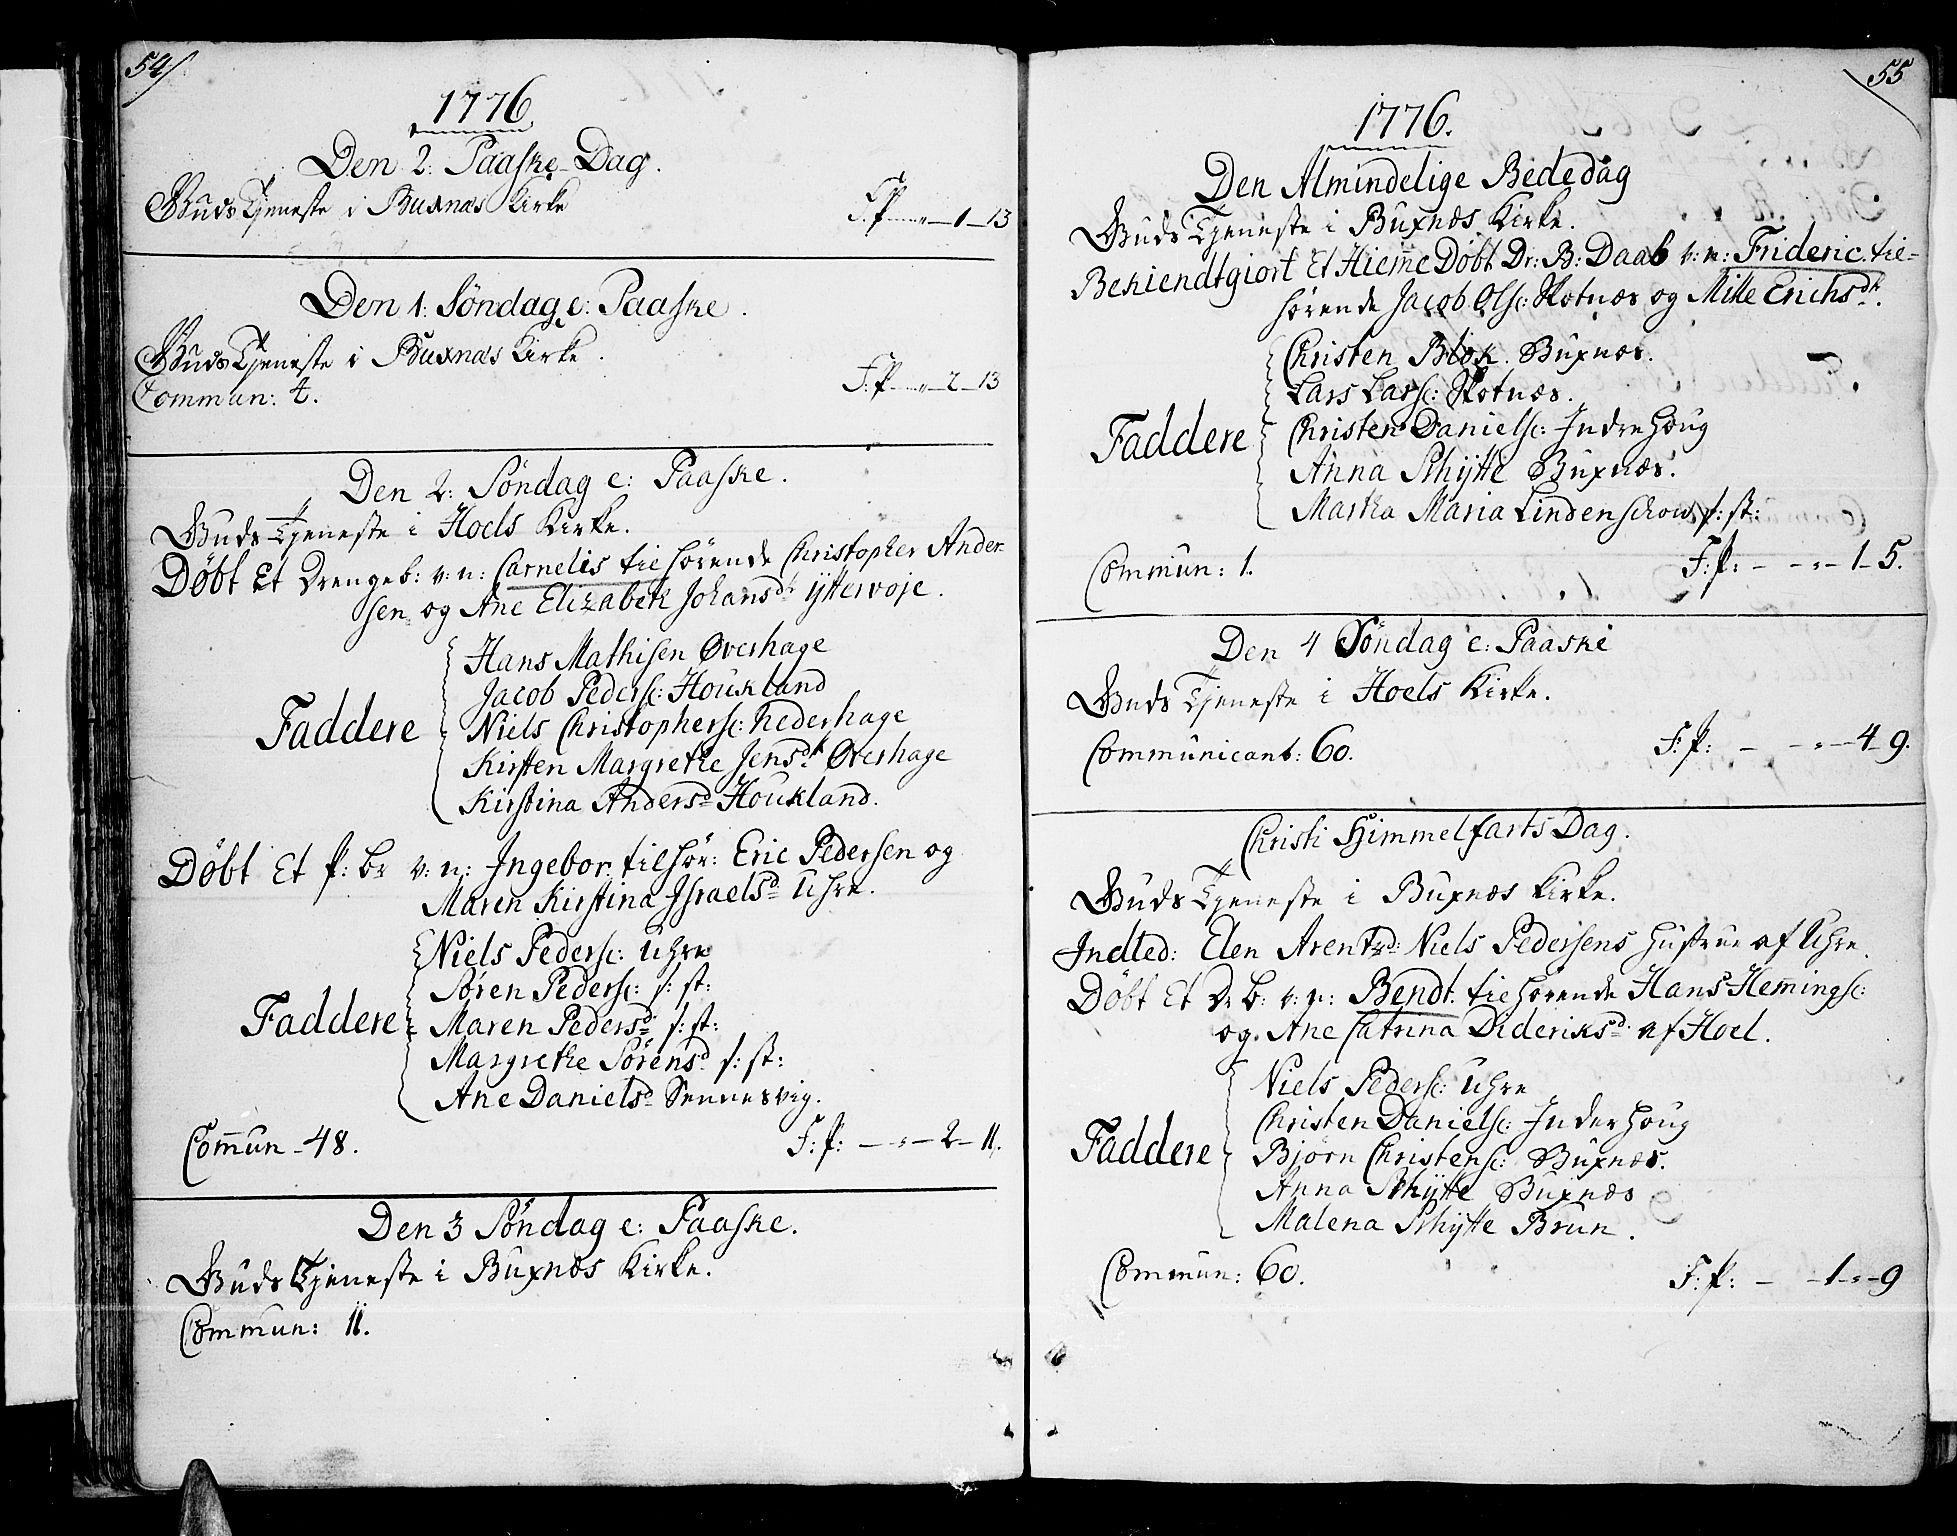 54/
1776
Den 2: Paaske-Dag.
Guds Tjeneste i Buxnæs Kirke
F: P. — " — 1 — 13
Den 1: Søndag e: Paaske.
Guds Tjeneste i Buxnæs Kirke.
Commun: 4.
F: P. — " — 2 — 13
Den 2: Søndag e: Paaske.
Guds Tjeneste i Hoels Kirke.
Døbt Et Drengeb: v: n: Carnelis tilhørende Christopher Ander-
sen og Ane Elizabeth Johansdr. Yttervoje.
Hans Mathisen Overhage
Jacob Peders: Houkland
Faddere
Niels Christophers: Nederhage
Kirsten Margrethe Jensdr. Overhage
Kirstina Andersd. Houkland.
Døbt Et P: br v: n: Ingebor: tilhør: Eric Pedersen og
Maren Kirstina Israelsd. Uhre.
Niels Peders: Uhre
Søren Peders: s: st:
Faddere
Maren Pedersd. s: st:
Margrethe Sørensd. s: st:
Ane Danielsd. Sennesvig.
Com̅un - 48.
F: P: — " — 2 — 11.
Den 3 Søndag e: Paaske.
Guds Tjeneste i Buxnæs Kirke.
Commun: 11.
55
1776.
Den Almindelige Bededag
Guds Tjeneste i Buxnæs Kirke.
Bekiendtgiort Et Hiem̅e Døbt Dr: B: Daab v: n: Frideric. til-
hørende Jacob Ols: Skotnæs og Mille Erichsdr.
Christen Blok. Buxnæs.
Lars Lars: Skotnæs.
Faddere
Christen Daniels: Indrehoug
Anna Schytte Buxnæs.
Martha Maria Lindenschow s: st:
Commun: 1.
F: P: — " — 1 — 5.
Den 4 Søndag e: Paaske
Guds Tjeneste i Hoels Kirke.
Communicant: 60.
F: P: — " — 4 9.
Christi Himmelfarts Dag.
Guds Tjeneste i Buxnæs Kirke.
Indled: Elen Arentzd: Niels Pedersens Hustrue af Uhre.
Døbt Et Dr. b: v: n: Bendt. tilhørende Hans Hem̅ings:
og Ane Catrina Dideriksd. af Hoel.
Niels Peders: Uhre
Christen Daniels: Inderhoug
Faddere
Bjørn Christens: Buxnæs.
Anna Schytte Buxnæs
Malena Schytte Brun.
Commun: 60.
F: P: — — 1 — " — 9